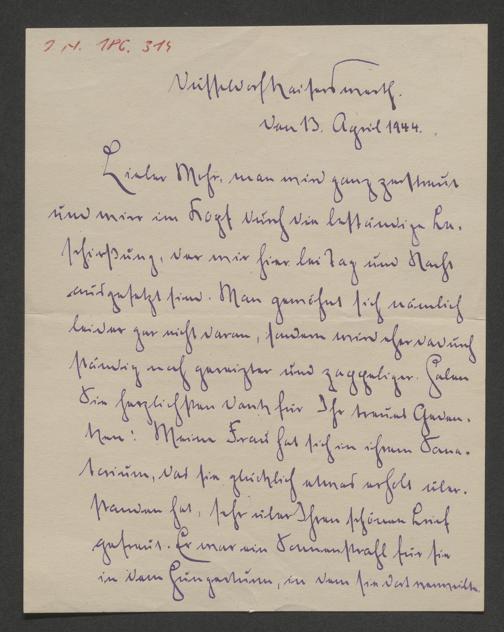 I. N. 186. 314
Düsseldorf Kaiserswerth.
den 13. April 1944.
Lieber Mohr. man wird ganz zerstreut
und wirr im Kopf durch die beständige Be-
schießung, der wir hier bei Tag und Nacht
ausgesetzt sind. Man gewöhnt sich nämlich
leider gar nicht daran, sondern wird eher dadurch
ständig noch gereizter und zappeliger. Haben
Sie herzlichsten Dank für Ihr treues Geden-
ken! Meine Frau hat sich in ihrem Sana-
torium, das sie glücklich etwas erholt über-
standen hat, sehr über Ihren schönen Brief
gefreut. Er war ein Sonnenstrahl für sie
in dem Hungerturm, in dem sie dort